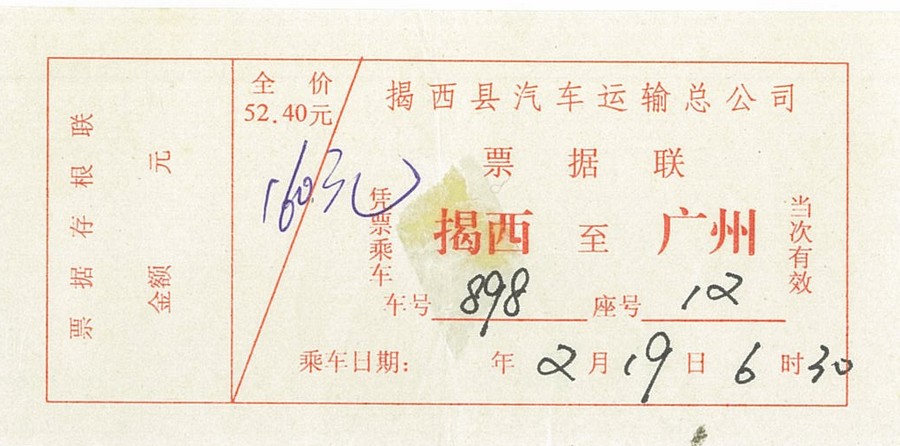 票据存根联
金额 元
全价
52.40元
160元
揭西县汽车运输总公司
票据联
凭票乘车
揭西至广州
当次有效
车号898 座号12
乘车日期: 年2月19日6时30